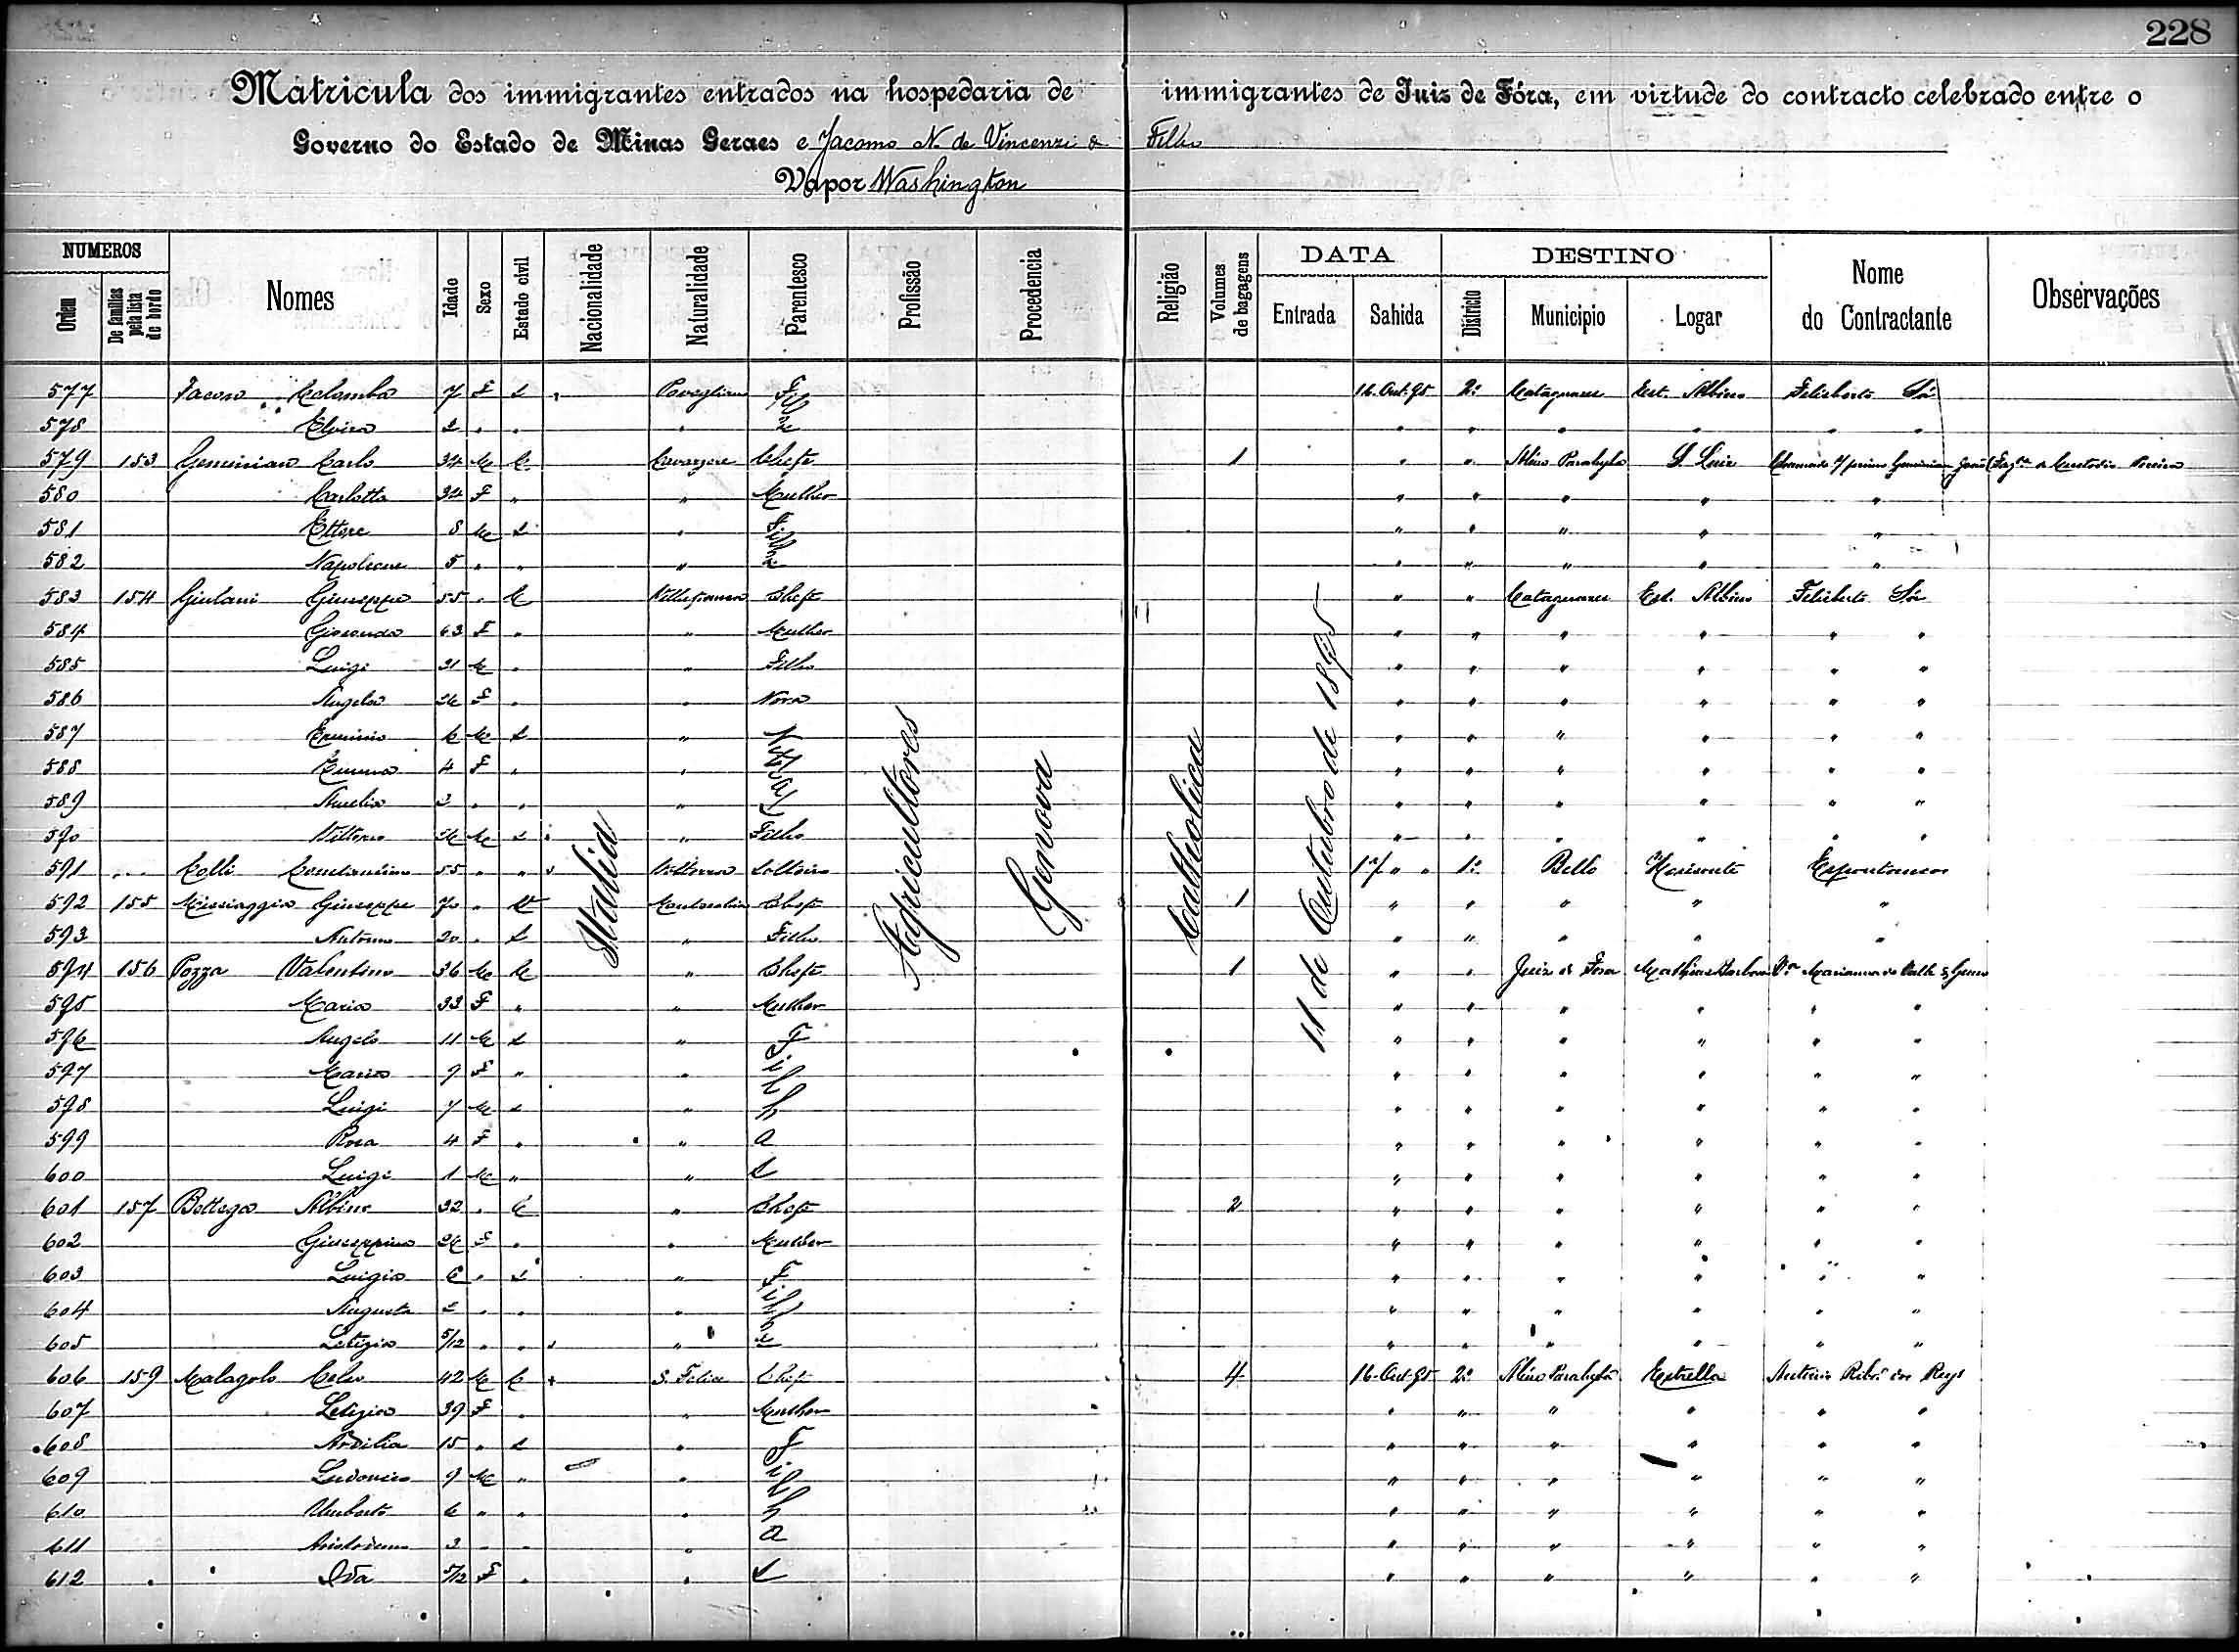 228
Matricula dos immigrantes entrados na hospedaria de immigrantes de Juiz de Fóra, em virtude do contracto celebrado entre o
Governo do Estado de Minas Geraes e Jacomo N. de Vincenzi & Filho
Vapor Washington
NUMEROS DATA DESTINO
Ordem De familias pela lista de bordo Nomes Idade Sexo Estado civil Nacionalidade Naturalidade Parentesco Profissão Procedencia Religião Volumes de bagagens Entrada Sahida Districto Municipio Logar Nome do Contractante Observações
Italia Agricultores Genova Catholica 11 de Outubro de 1895
577 Colomba 7 F S Povegliano 16-Out-95 2º Cataguazes Est. Albino Feliberto Sá
578 Elvira 2 " "
579 153 Geminian Carlo 34 M C Cavarzere Chefe 1 " " Além Parahyba S. Luiz
580 Carlotta 34 F " " Mulher " " " " "
581 Ettore 8 M S " " " " " "
582 Napoleone 5 " " " " " " " "
583 154 Giulani Giuseppe 55 " C Chefe " " Cataguazes Est. Albino Feliberto Sá
584 63 F " " Mulher " " " " " "
585 Luigi 31 M " " Filho " " " " " "
586 Angela 26 F " " Nora " " " " " "
587 Erminio 6 M S " " " " " " "
588 Emma 4 F " " " " " " " "
589 Amelia 2 " " " " " " " " "
590 Vittorio 26 M S " Filho " " " " " "
591 Colli Constantino 55 " " Solteiro 17 " " 1º Bello Horisonte Espontaneos
592 155 Missiaggia Giuseppe 70 " V Chefe 1 " " " " "
593 Antonio 20 " S " Filho " " " " "
594 156 Pozza Valentino 36 M C " Chefe 1 " " Juiz de Fora Mathias Barbosa Marianna do Valle & Genro
595 Maria 33 F " " Mulher " " " " " "
596 Angelo 11 M S " F " " " " " "
597 Maria 9 F " " i l " " " " " "
598 Luigi 7 M S " h " " " " " "
599 Rosa 4 F " " a " " " " " "
600 Luigi 1 M " " s " " " " " "
601 157 Bottega Albino 32 " C " Chefe 2 " " " " " "
602 Giuseppina 26 F " " Mulher " " " " " "
603 Luigia 6 " S " F " " " " " "
604 Augusta 2 " " " i l " " " " " "
605 Letizia 5/12 " " " " " " " " "
606 159 Malagolo Celso 42 M C S. Felice Chefe 4 16-Out-95 2º Além Parahyba Estrella Antonio Ribº dos Reys
607 Letizia 39 F " " Mulher " " " " " "
608 Ardilia 15 " S " F " " " " " "
609 Ludovico 9 M " " i l " " " " " "
610 Umberto 6 " " " h " " " " " "
611 3 " " " a " " " " " "
612 Ida F " " s " " " " " "